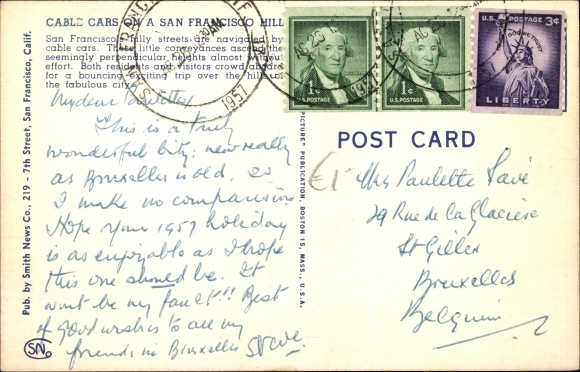 CABLE CARS ON A SAN FRANCISCO HILL
San Francisco's hilly streets are navigated by
cable cars. These little conveyances ascend the
seemingly perpendicular heights almost without
effort. Both residents and visitors crowd aboard
for a bouncing, exciting trip over the hills of
the fabulous city.
My dear Paulette,
This is a truly
wonderful city; new really
as Bruxelles is old, so
I make no comparisons
Hope your 1957 holiday
is as enjoyable as I hope
this one should be. It
wont be my fault!!! Best
of good wishes to all my
friends in Bruxelles Steve.
Pub. by Smith News Co., 219 - 7th Street, San Francisco, Calif.
SN
PICTURE" PUBLICATION, BOSTON 15, MASS., U.S.A.
SAN FRANCISCO
AUG 23
30 AM
1957
1¢
U.S. POSTAGE
1¢
U.S. POSTAGE
U.S. POSTAGE 3¢
IN GOD WE TRUST
LIBERTY
POST CARD
€1
Miss Paulette Pavé
29 Rue de la Glacière
St Gilles
Bruxelles
Belgium